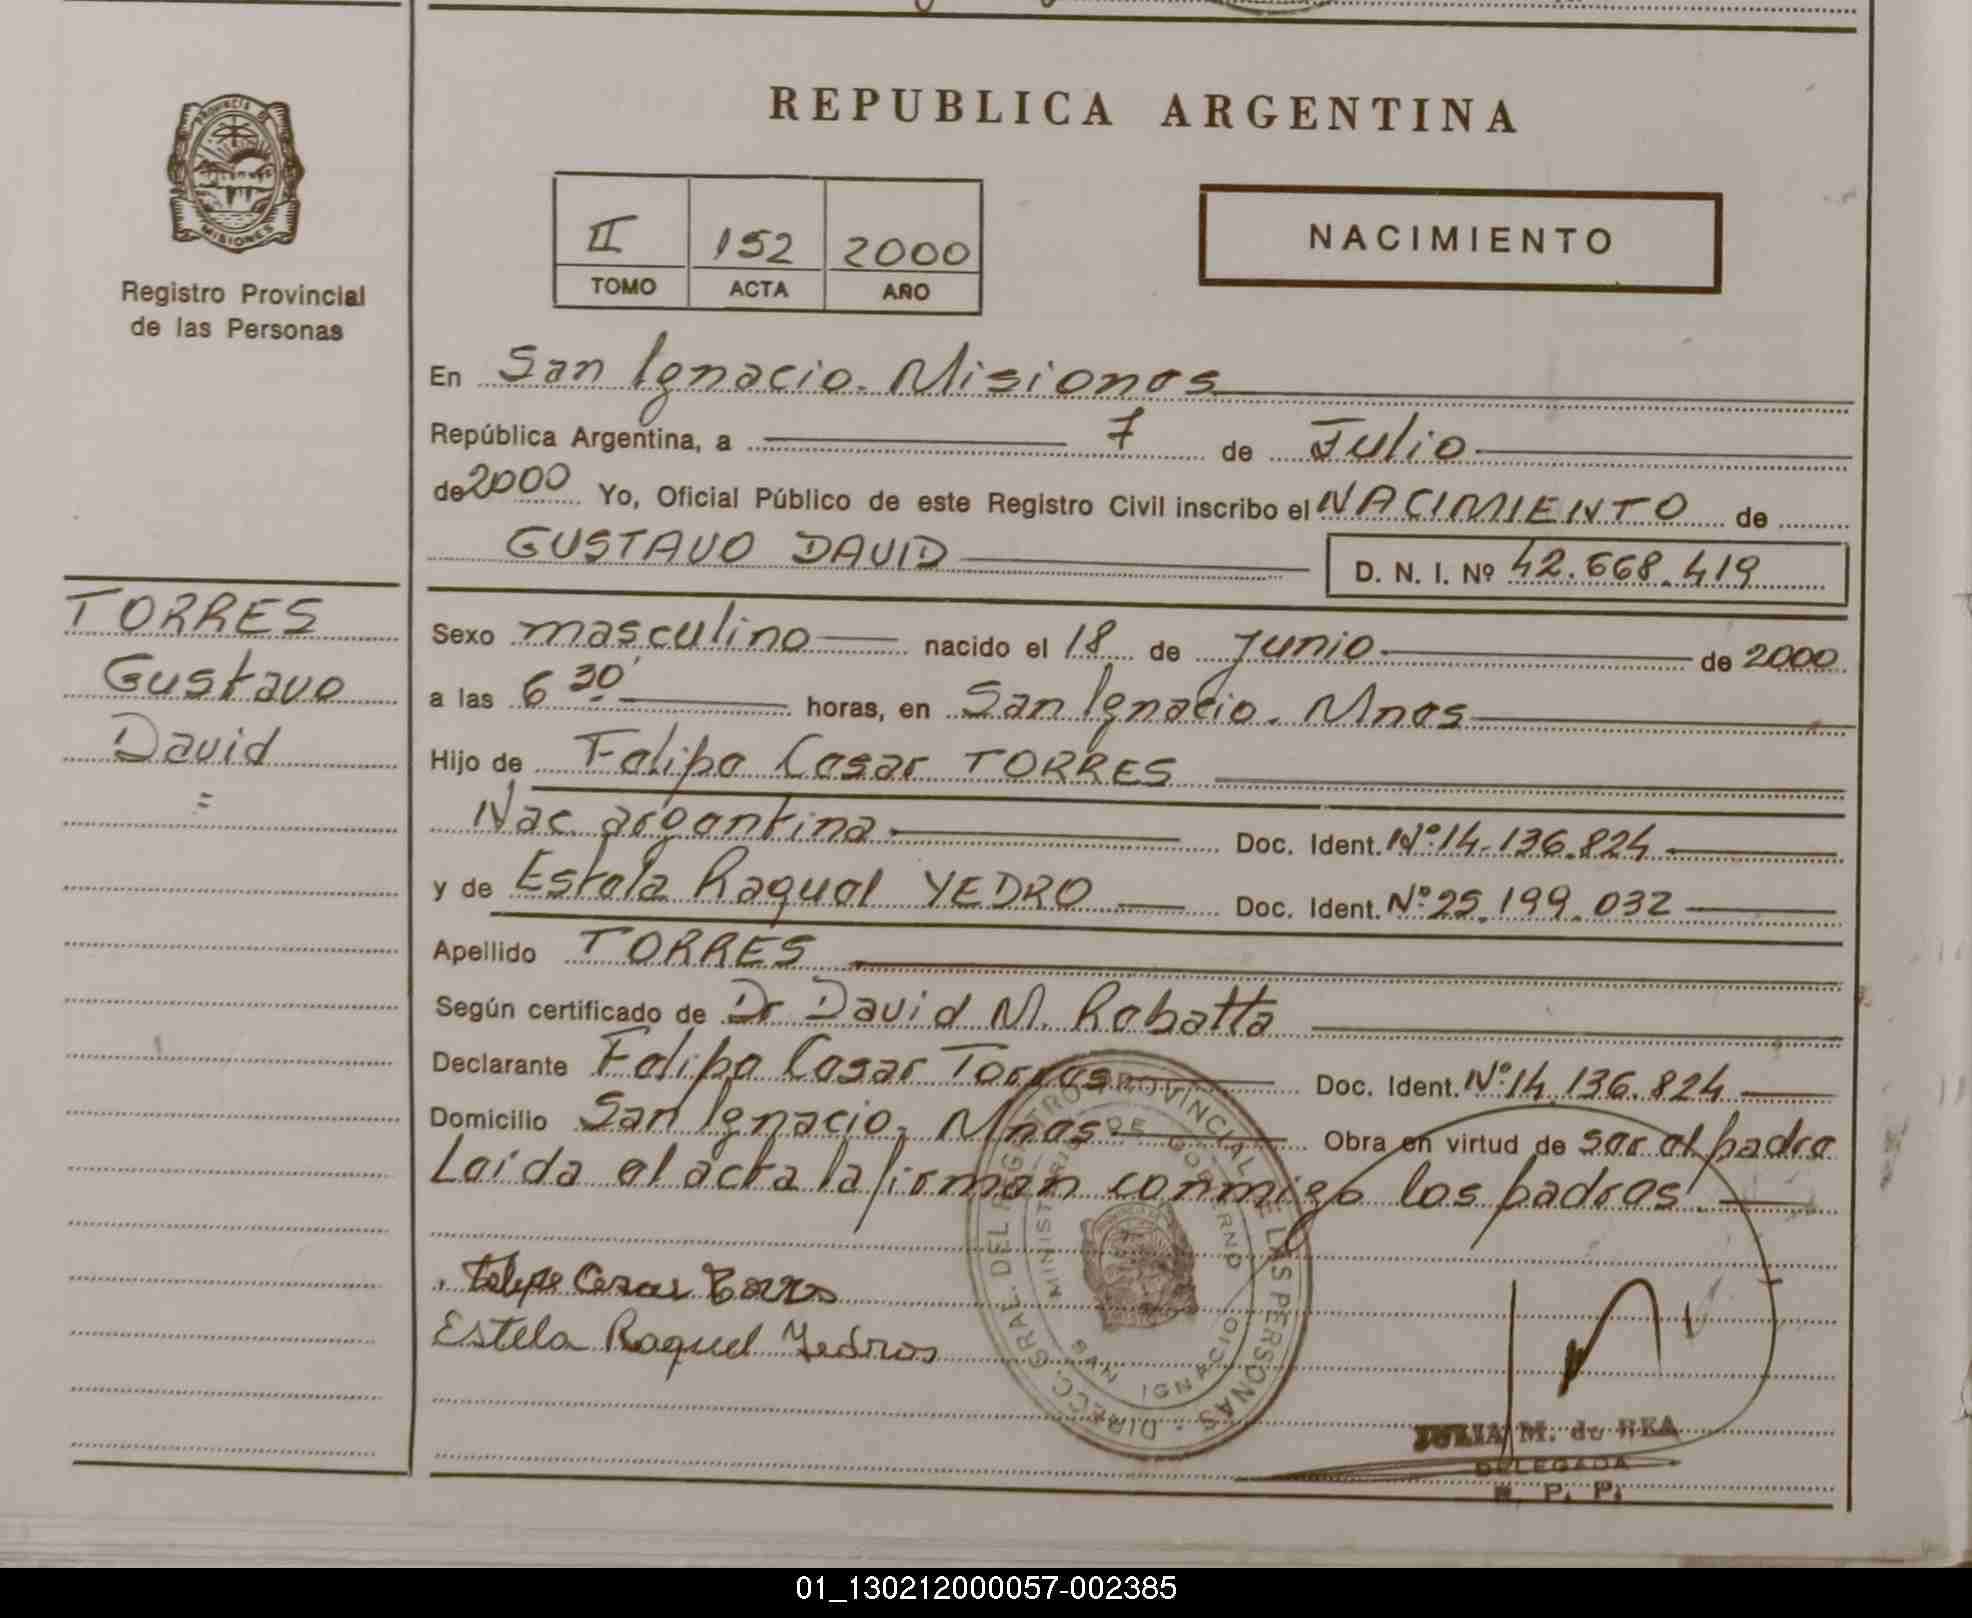 REPUBLICA ARGENTINA
PROVINCIA DE
MISIONES
Registro Provincial
de las Personas
II 152 2000
TOMO ACTA AÑO
NACIMIENTO
En San Ignacio. Misiones
República Argentina, a 7 de Julio
de 2000 Yo, Oficial Público de este Registro Civil inscribo el NACIMIENTO de
GUSTAVO DAVID D. N. I. Nº 42.668.419
TORRES
Gustavo
David
=
Sexo masculino nacido el 18 de junio de 2000
a las 6 30' horas, en San Ignacio. Mnes
Hijo de Felipe Cesar TORRES
Nac. argentina Doc. Ident. Nº 14.136.824
y de Estela Raquel YEDRO Doc. Ident. Nº 25.199.032
Apellido TORRES
Según certificado de Dr David M. Robatta
Declarante Felipe Cesar Torres Doc. Ident. Nº 14.136.824
Domicilio San Ignacio. Mnes Obra en virtud de ser el padre
Leída el acta la firman conmigo los padres.
Felipe Cesar Torres
Estela Raquel Yedros
DIRECC. GRAL. DEL REGISTRO PROVINCIAL DE LAS PERSONAS
MINISTERIO DE GOBERNO
SAN IGNACIO
JULIA M. de REA
DELEGADA
R. P. P.
01_130212000057-002385